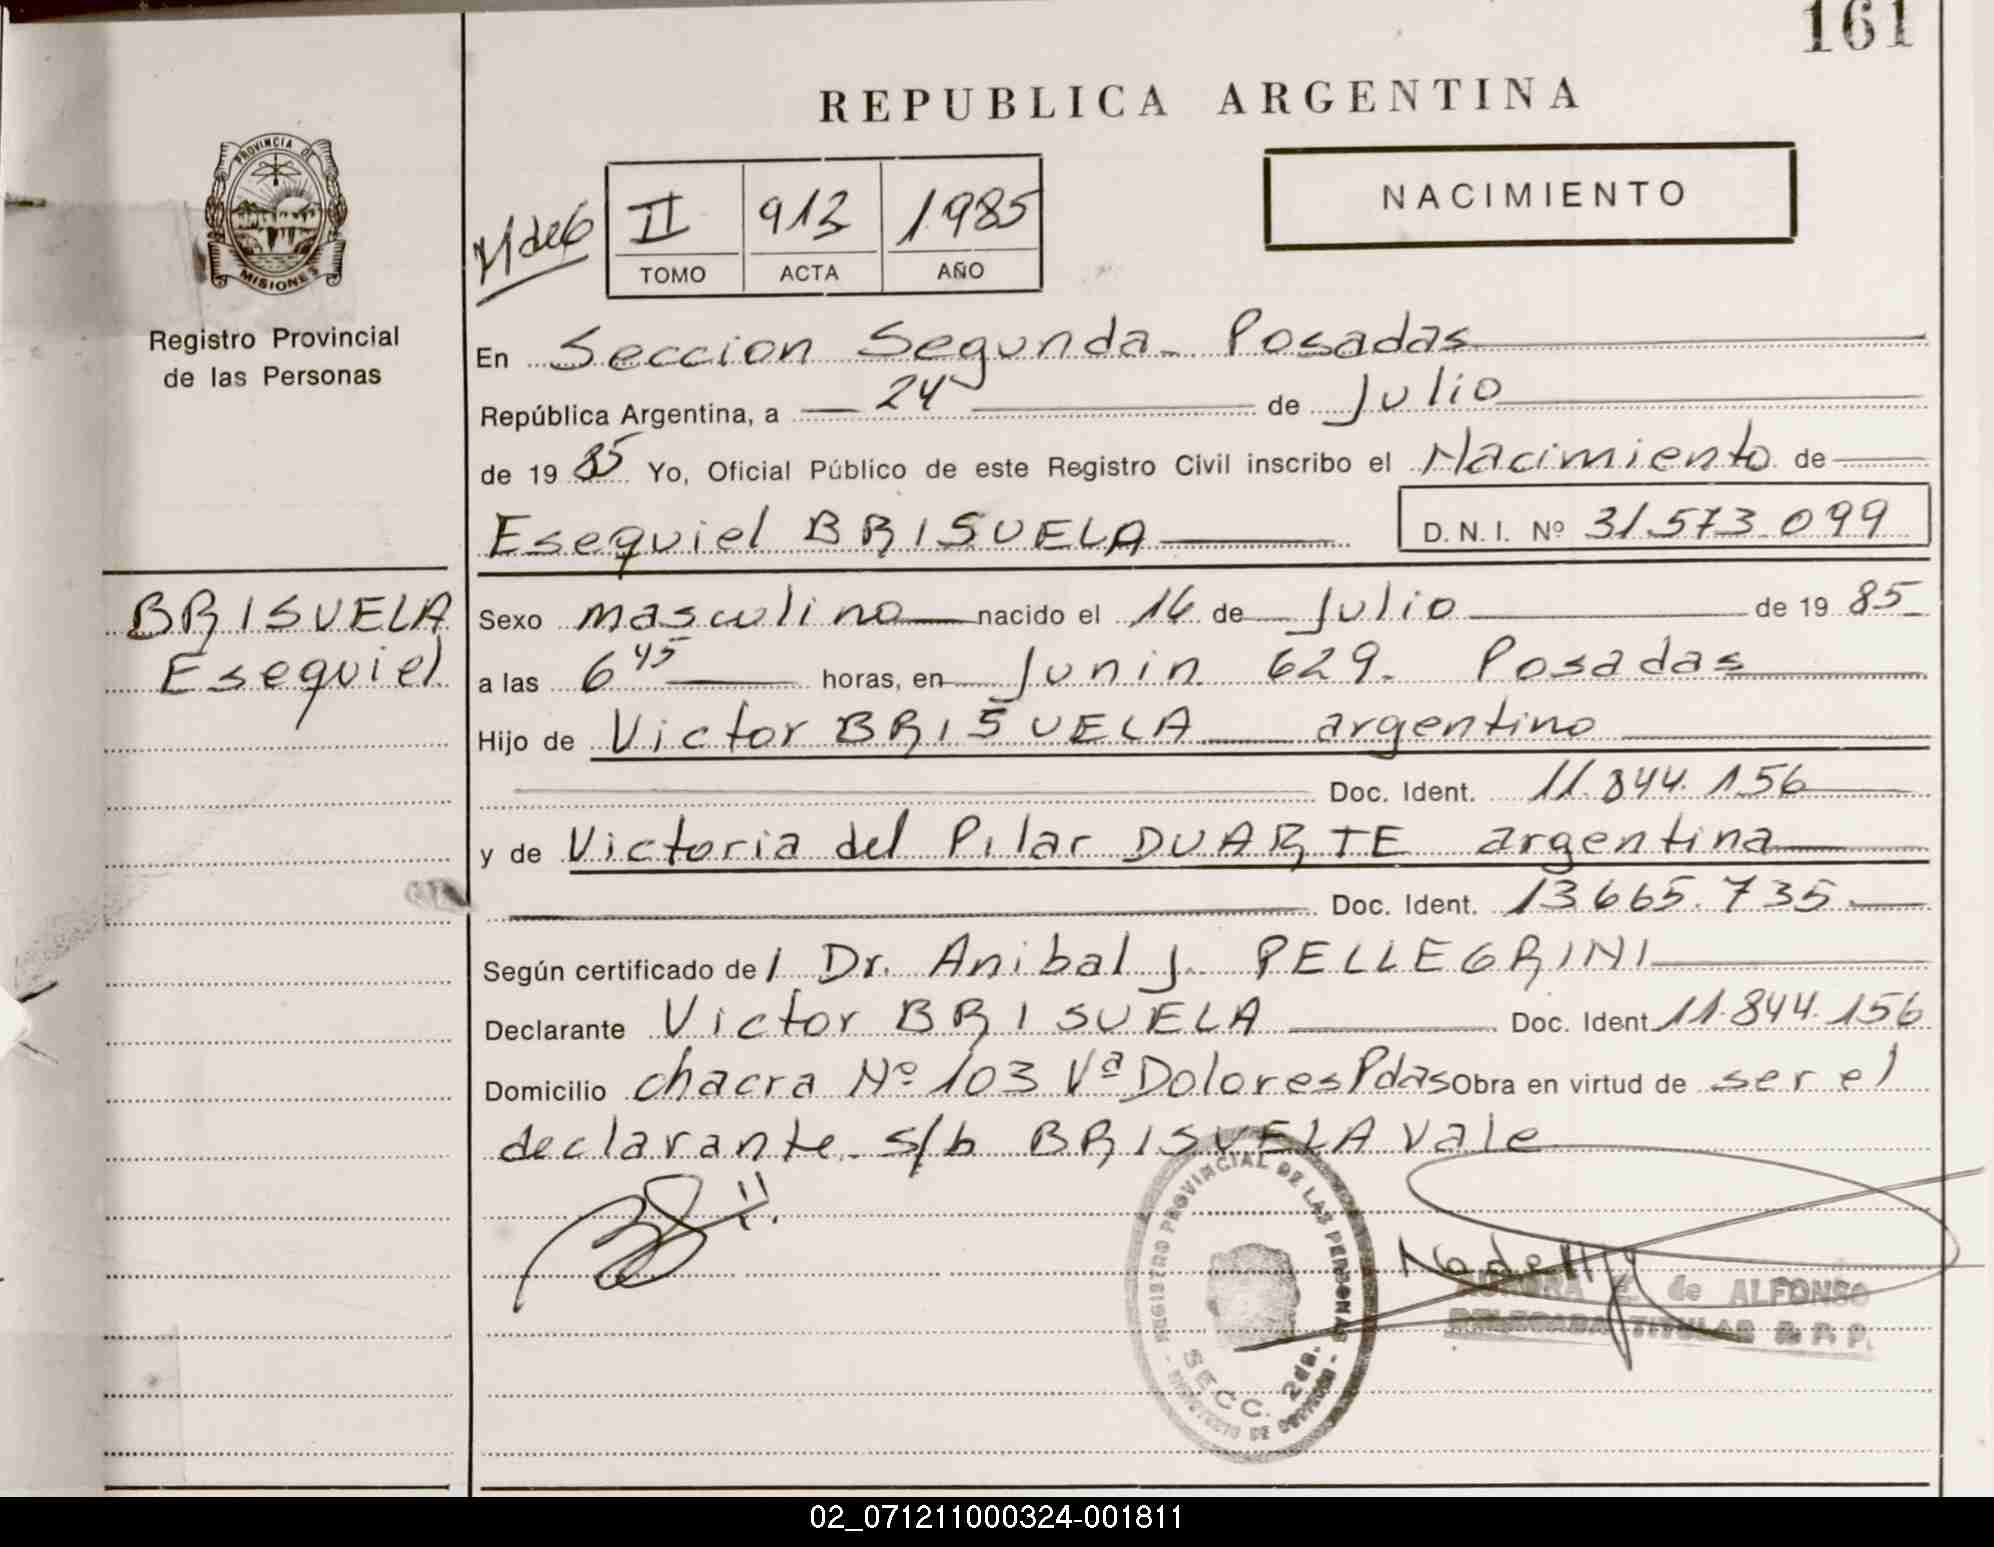 161
REPUBLICA ARGENTINA
PROVINCIA DE
MISIONES
Registro Provincial
de las Personas
II 913 1985
TOMO ACTA AÑO
NACIMIENTO
En Seccion Segunda. Posadas
República Argentina, a 24 de Julio
de 1985 Yo, Oficial Público de este Registro Civil inscribo el Nacimiento de
Esequiel BRISUELA D. N. I. Nº 31.573.099
BRISUELA
Esequiel
Sexo masculino nacido el 16 de Julio de 1985
a las 6 45 horas, en Junin 629. Posadas
Hijo de Victor BRISUELA argentino
Doc. Ident. 11.844.156
y de Victoria del Pilar DUARTE argentina
Doc. Ident. 13665.735
Según certificado de / Dr. Anibal J. PELLEGRINI
Declarante Victor BRISUELA Doc. Ident 11.844.156
Domicilio chacra Nº 103 Vª Dolores Pdas Obra en virtud de ser el
declarante. s/b BRISUELA Vale
REGISTRO PROVINCIAL DE LAS PERSONAS
SECC. 2da.
de ALFONSO
DELEGADA TITULAR R. P. P.
02_071211000324-001811